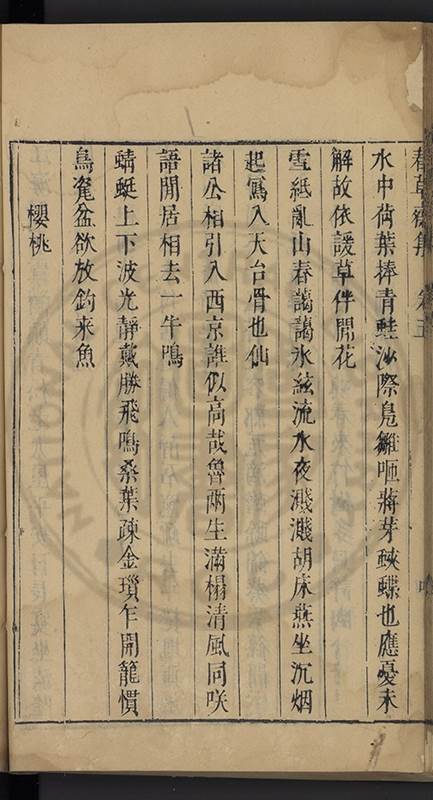 春草齋集 卷五
水中荷葉捧青蛙沙際鳧雛咂蔣芽蛺蝶也應憂未
解故依諼草伴閒花
雪紙亂山春藹藹氷絃流水夜濺濺胡床燕坐沉烟
起寫入天台骨也仙
諸公相引入西京誰似高哉魯兩生滿榻清風同咲
語閒居相去一牛鳴
蜻蜓上下波光靜戴勝飛鳴桑葉疎金瑣乍開籠慣
鳥窺盆欲放鈎来魚
櫻桃